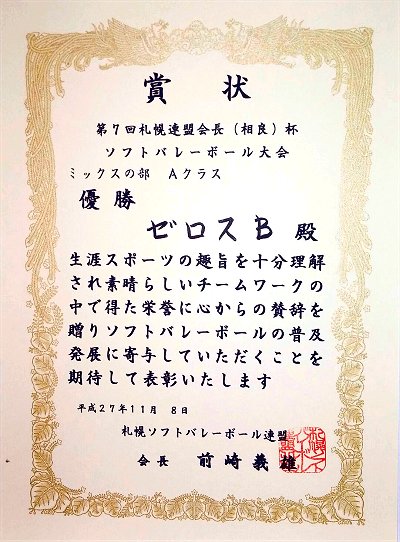 賞状
第7回札幌連盟会長(相良)杯
ソフトバレーボール大会
ミックスの部 Aクラス
優勝
ゼロスB 殿
生涯スポーツの趣旨を十分理解
され素晴らしいチームワークの
中で得た栄誉に心からの賛辞を
贈りソフトバレーボールの普及
発展に寄与していただくことを
期待して表彰いたします
平成27年11月 8日
札幌ソフトバレーボール連盟
会長 前崎義雄